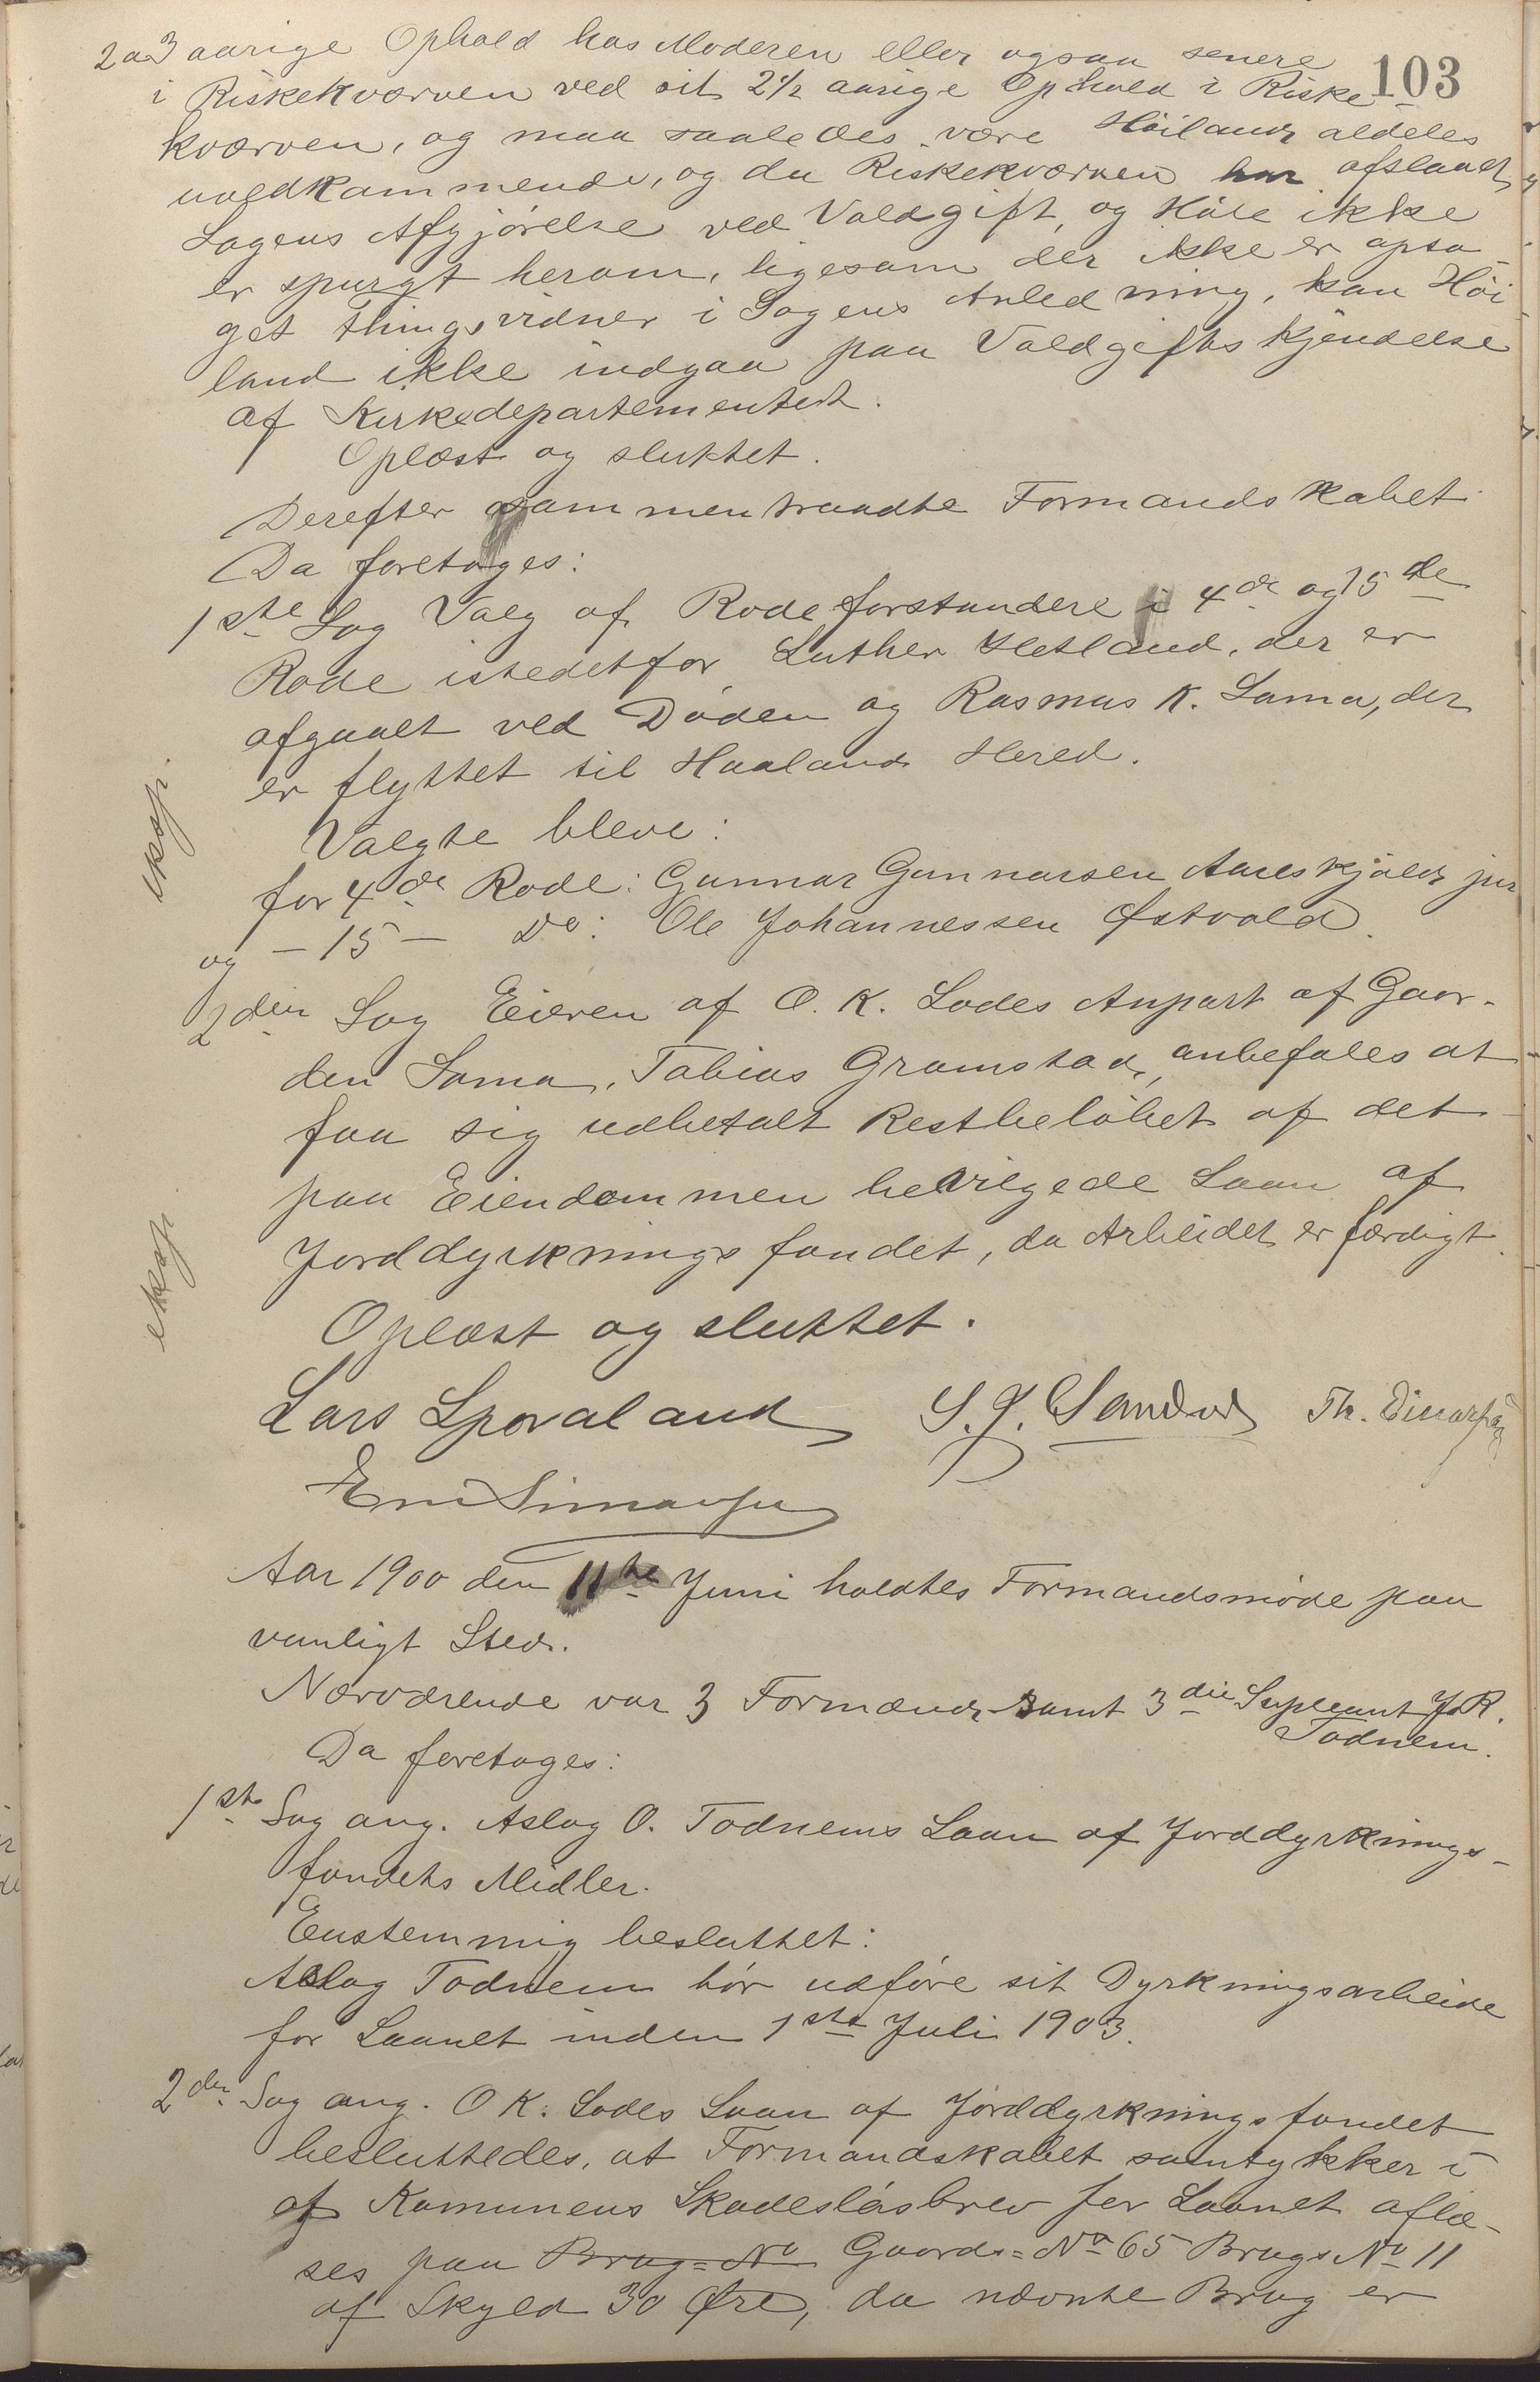 103
2 a 3 aarige Ophold hos Moderen eller ogsaa senere
i Riskekværven ved sit 2½ aarige Ophold i Riske
kværven, og maa saaledes være Höiland aldeles
uvedkommende, og da Riskekværven har afslaaet
Sagens Afgjörelse ved Voldgift, og Höle ikke
er spurgt herom, ligesom der ikke er opta
get Thingsvidner i Sagens Anledning, kan Höi
land ikke indgaa paa Voldgifts kjendelse
af Kirkedepartementet.
Oplæst og sluttet.
Derefter sammentraadte Formandskabet
Da foretoges:
1ste Sag Valg af Rodeforstandere i 4de og 15de
Rode istedetfor Luther Hetland, der er
afgaaet ved Döden og Rasmus K. Soma, der
er flyttet til Haaland Hered.
eksp.
Valgte bleve:
for 4de Rode: Gunnar Gunnarsen Aareskjold jur
og – 15 – Do: Ole Johannessen Østvold.
2den Sag Eieren af O. K. Lodes Anpart af Gaar-
den Soma, Tobias Gramstad, anbefales at
faa sig udbetalt Restbelöbet af det
paa Eiendommen bevilgede Laan af
Jorddyrkningsfondet, da Arbeidet er færdigt.
eksp.
Oplæst og sluttet.
Lars Sporaland S. J. Sandvd Th.
Aar 1900 den 11te Juni holdtes Formandsmöde paa
vanligt Sted.
Nærværende var 3 Formænd samt 3die Supleant J. R.
Todnem.
Da foretoges:
1ste Sag ang. Aslag O. Todnems Laan af Jorddyrknings-
fondets Midler.
Enstemmig besluttet:
Aslag Todnem bör udföre sit Dyrkningsarbeide
for Laanet inden 1ste Juli 1903.
2den Sag ang. O K. Lodes Laan af Jorddyrkningsfondet
besluttedes, at Formandskabet samtykker i
at Komunens Skadeslösbrev for Laanet aflæ-
ses paa Brug=No Gaards=No 65 Brugs No 11
af Skyld 30 Øre, da nævnte Brug er